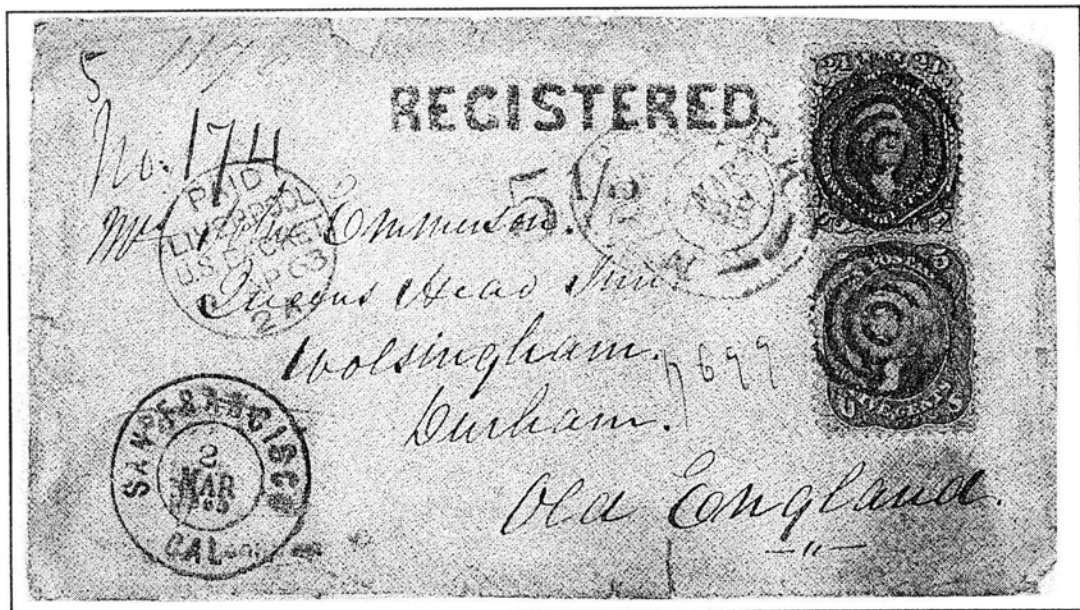 5
REGISTERED
No. 174
5 1/2
PAID
LIVERPOOL
U.S. PACKET
63
2
MAR
Emmerson.
Queens Head Inn.
Wolsingham.
7699
Durham.
Old England.
SAN FRANCISCO
2
MAR
CAL